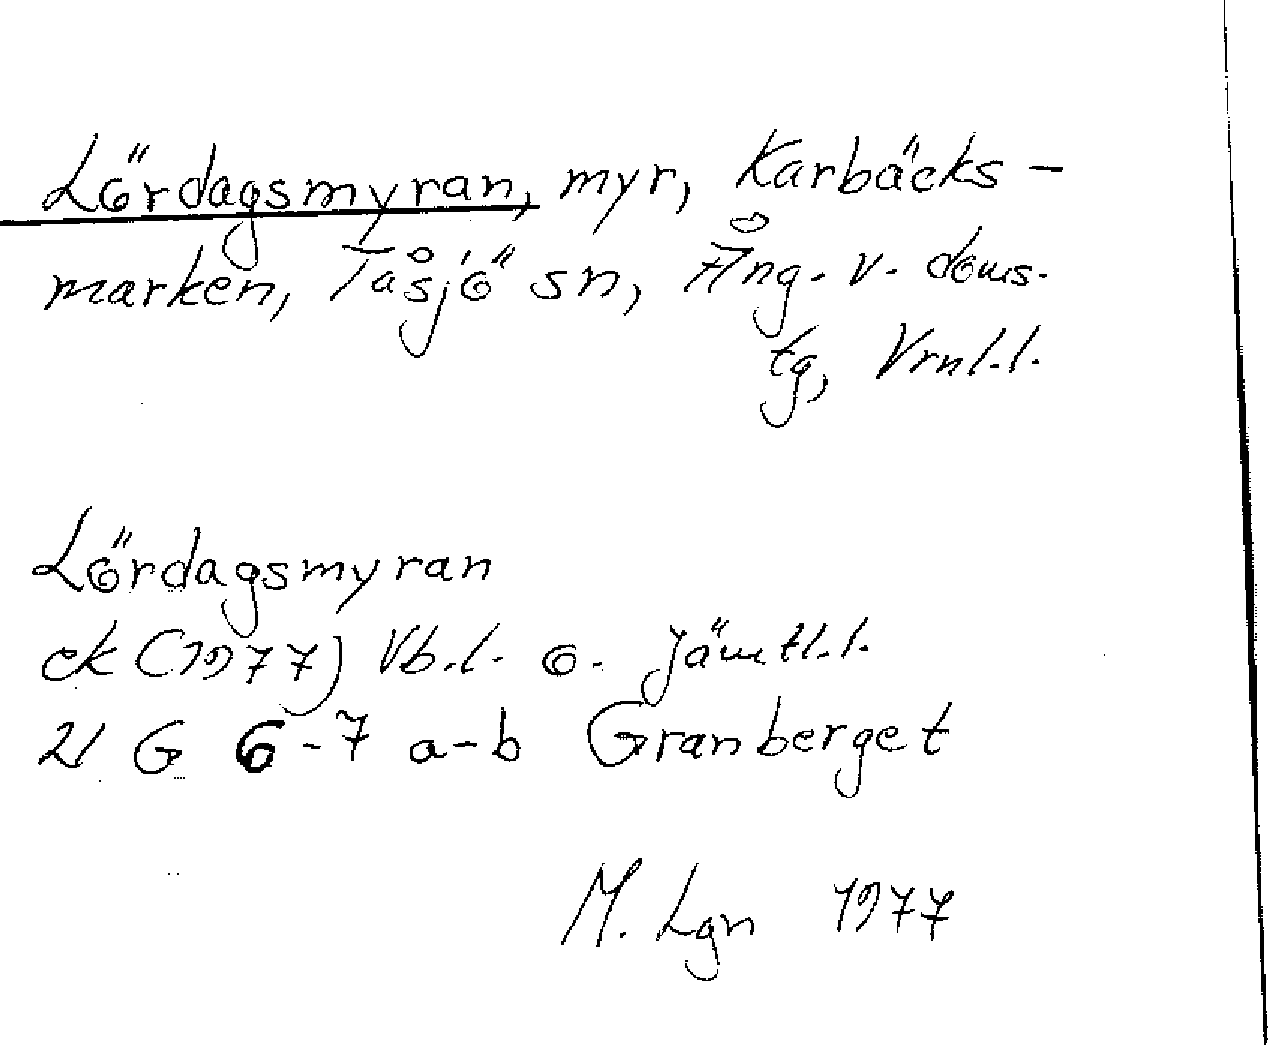 Lördagsmyran, myr, Karbäcks-
marken, Tåsjö sn, Ång. v. doms.
tg, Vrnl.l.
Lördagsmyran
ek (1977) Vb.l. o. Jämtl.l.
21 G 6-7 a-b Granberget
M. Lgn 1977